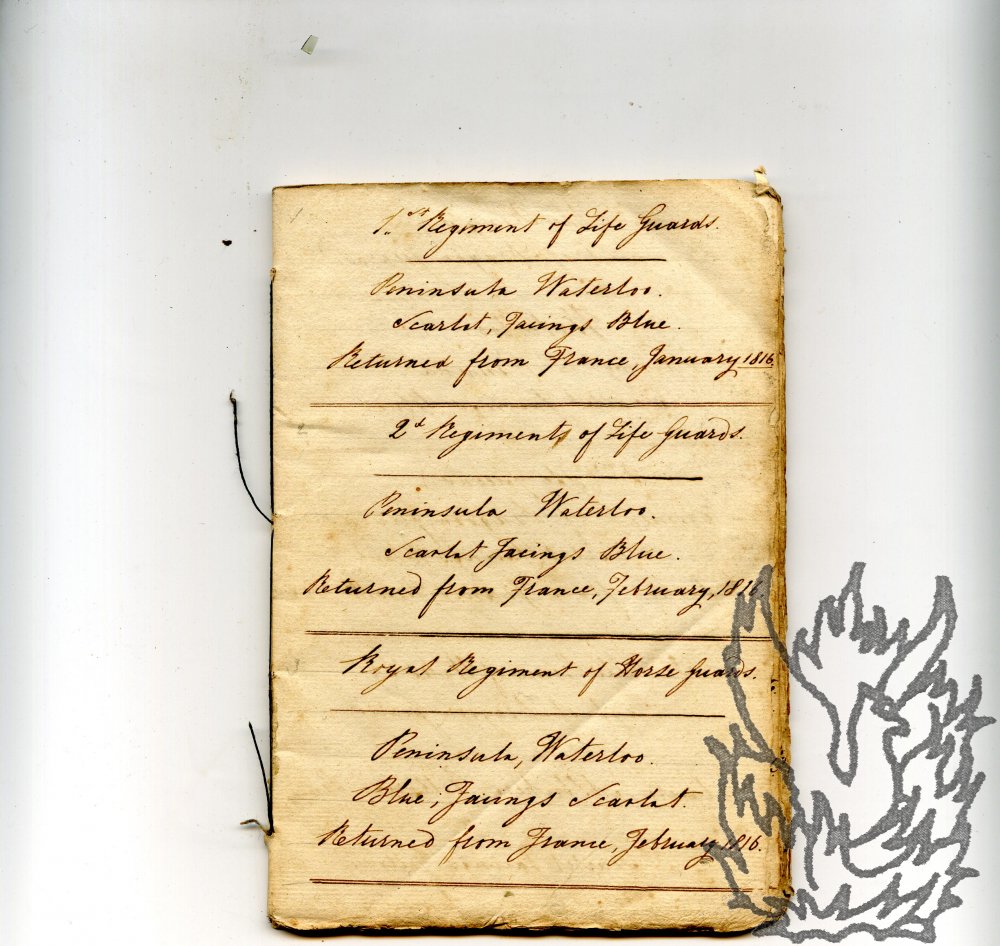 1
1.st Regiment of Life Guards.
Peninsula Waterloo.
Scarlet, Facings Blue.
Returned from France, January 1816
2
2d Regiments of Life Guards.
Peninsula Waterloo.
Scarlet Facings Blue.
Returned from France, February, 1816.
Royal Regiment of Horse Guards.
Peninsula, Waterloo.
Blue, Facings Scarlet.
Returned from France, February 1816.